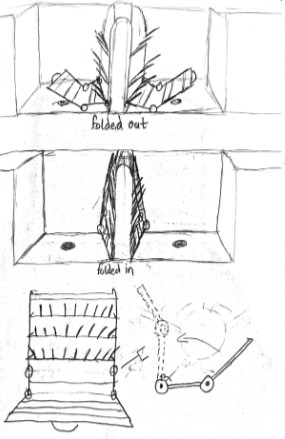 folded out
folded in